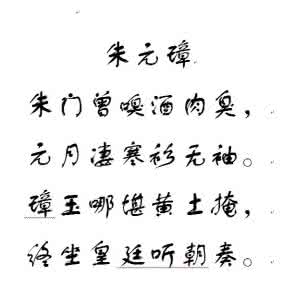 朱元璋
朱门曾嗅酒肉臭，
元月凄寒衫无袖。
璋王哪堪黄土掩，
终坐皇廷听朝奏。